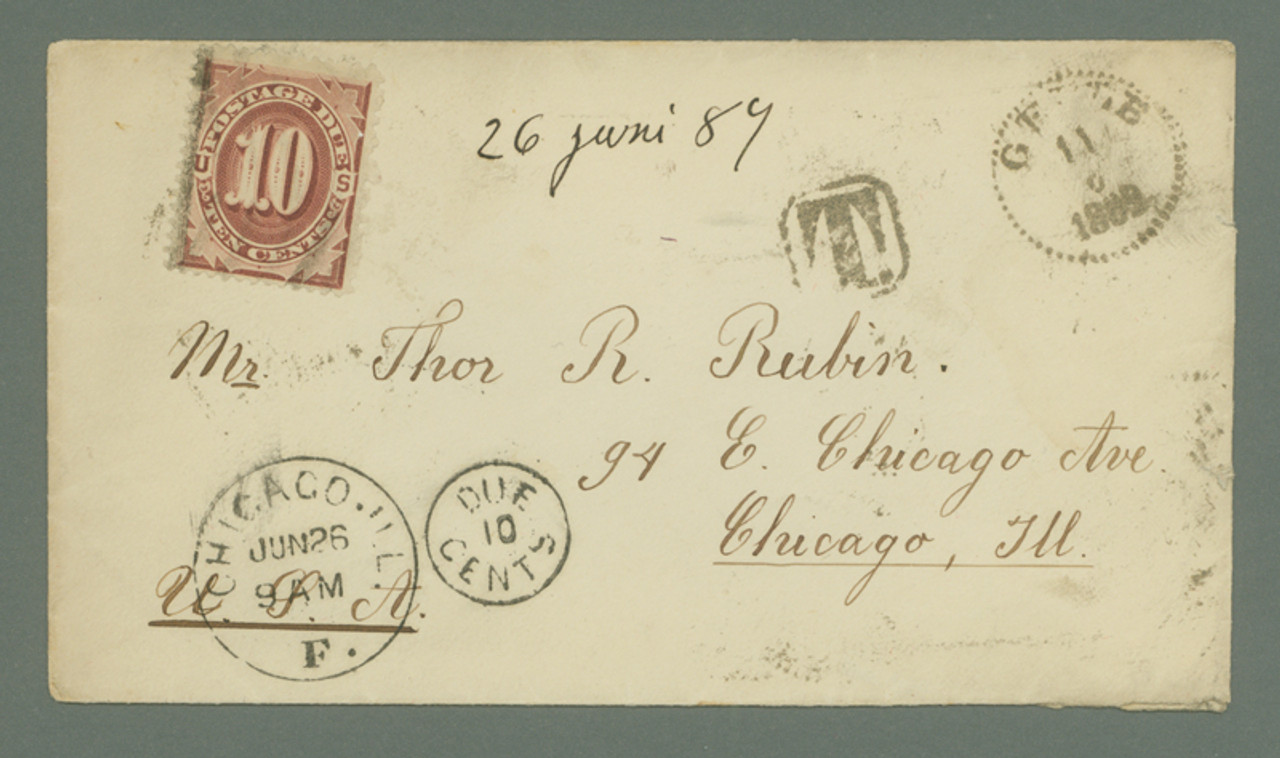 POSTAGE DUE
U 10 S
TEN CENTS
26 juni 89
T
11
6
1889
Mr. Thor R. Rubin.
94 E. Chicago Ave.
Chicago, Ill.
U. S. A.
CHICAGO. ILL.
JUN 26
9 AM
F.
DUE
10
CENTS